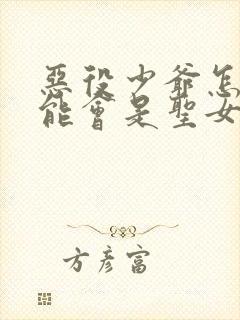 惡役少爺怎
能會是聖女
方彥富